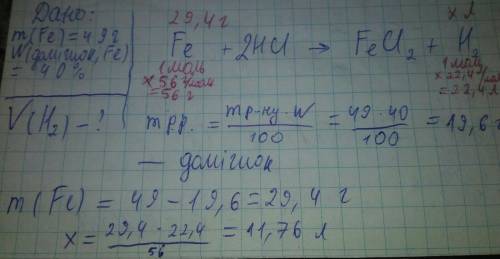 Дано:
m(Fe)=49г
W(домішок, Fe)
= 40%
V(H₂) - ?
29,4 г
x л
Fe + 2HCl → FeCl₂ + H₂
1 моль
1 моль
x 56 г/моль
x 22,4 л/моль
= 56 г
= 22,4 л
m р.р. = mр-ну·w/100 = 49·40/100 = 19,6 г
— домішок
m(Fe) = 49 - 19,6 = 29,4 г
x = 29,4·22,4/56 = 11,76 л